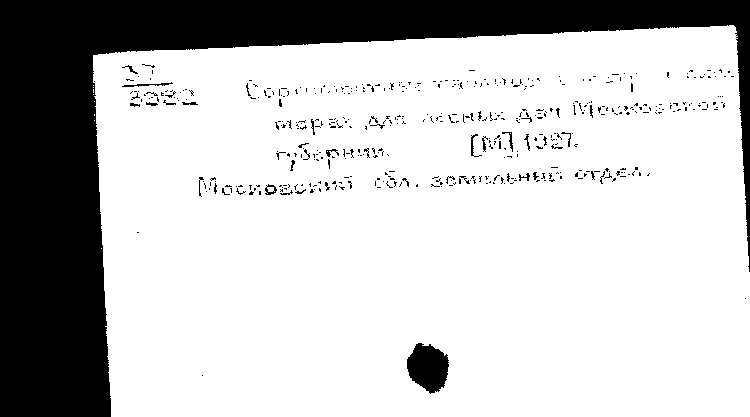 37
Сортиментные таблицы в
мерах для лесных дач Московской
губернии. [М], 1927.
Московский обл. земельный отдел.